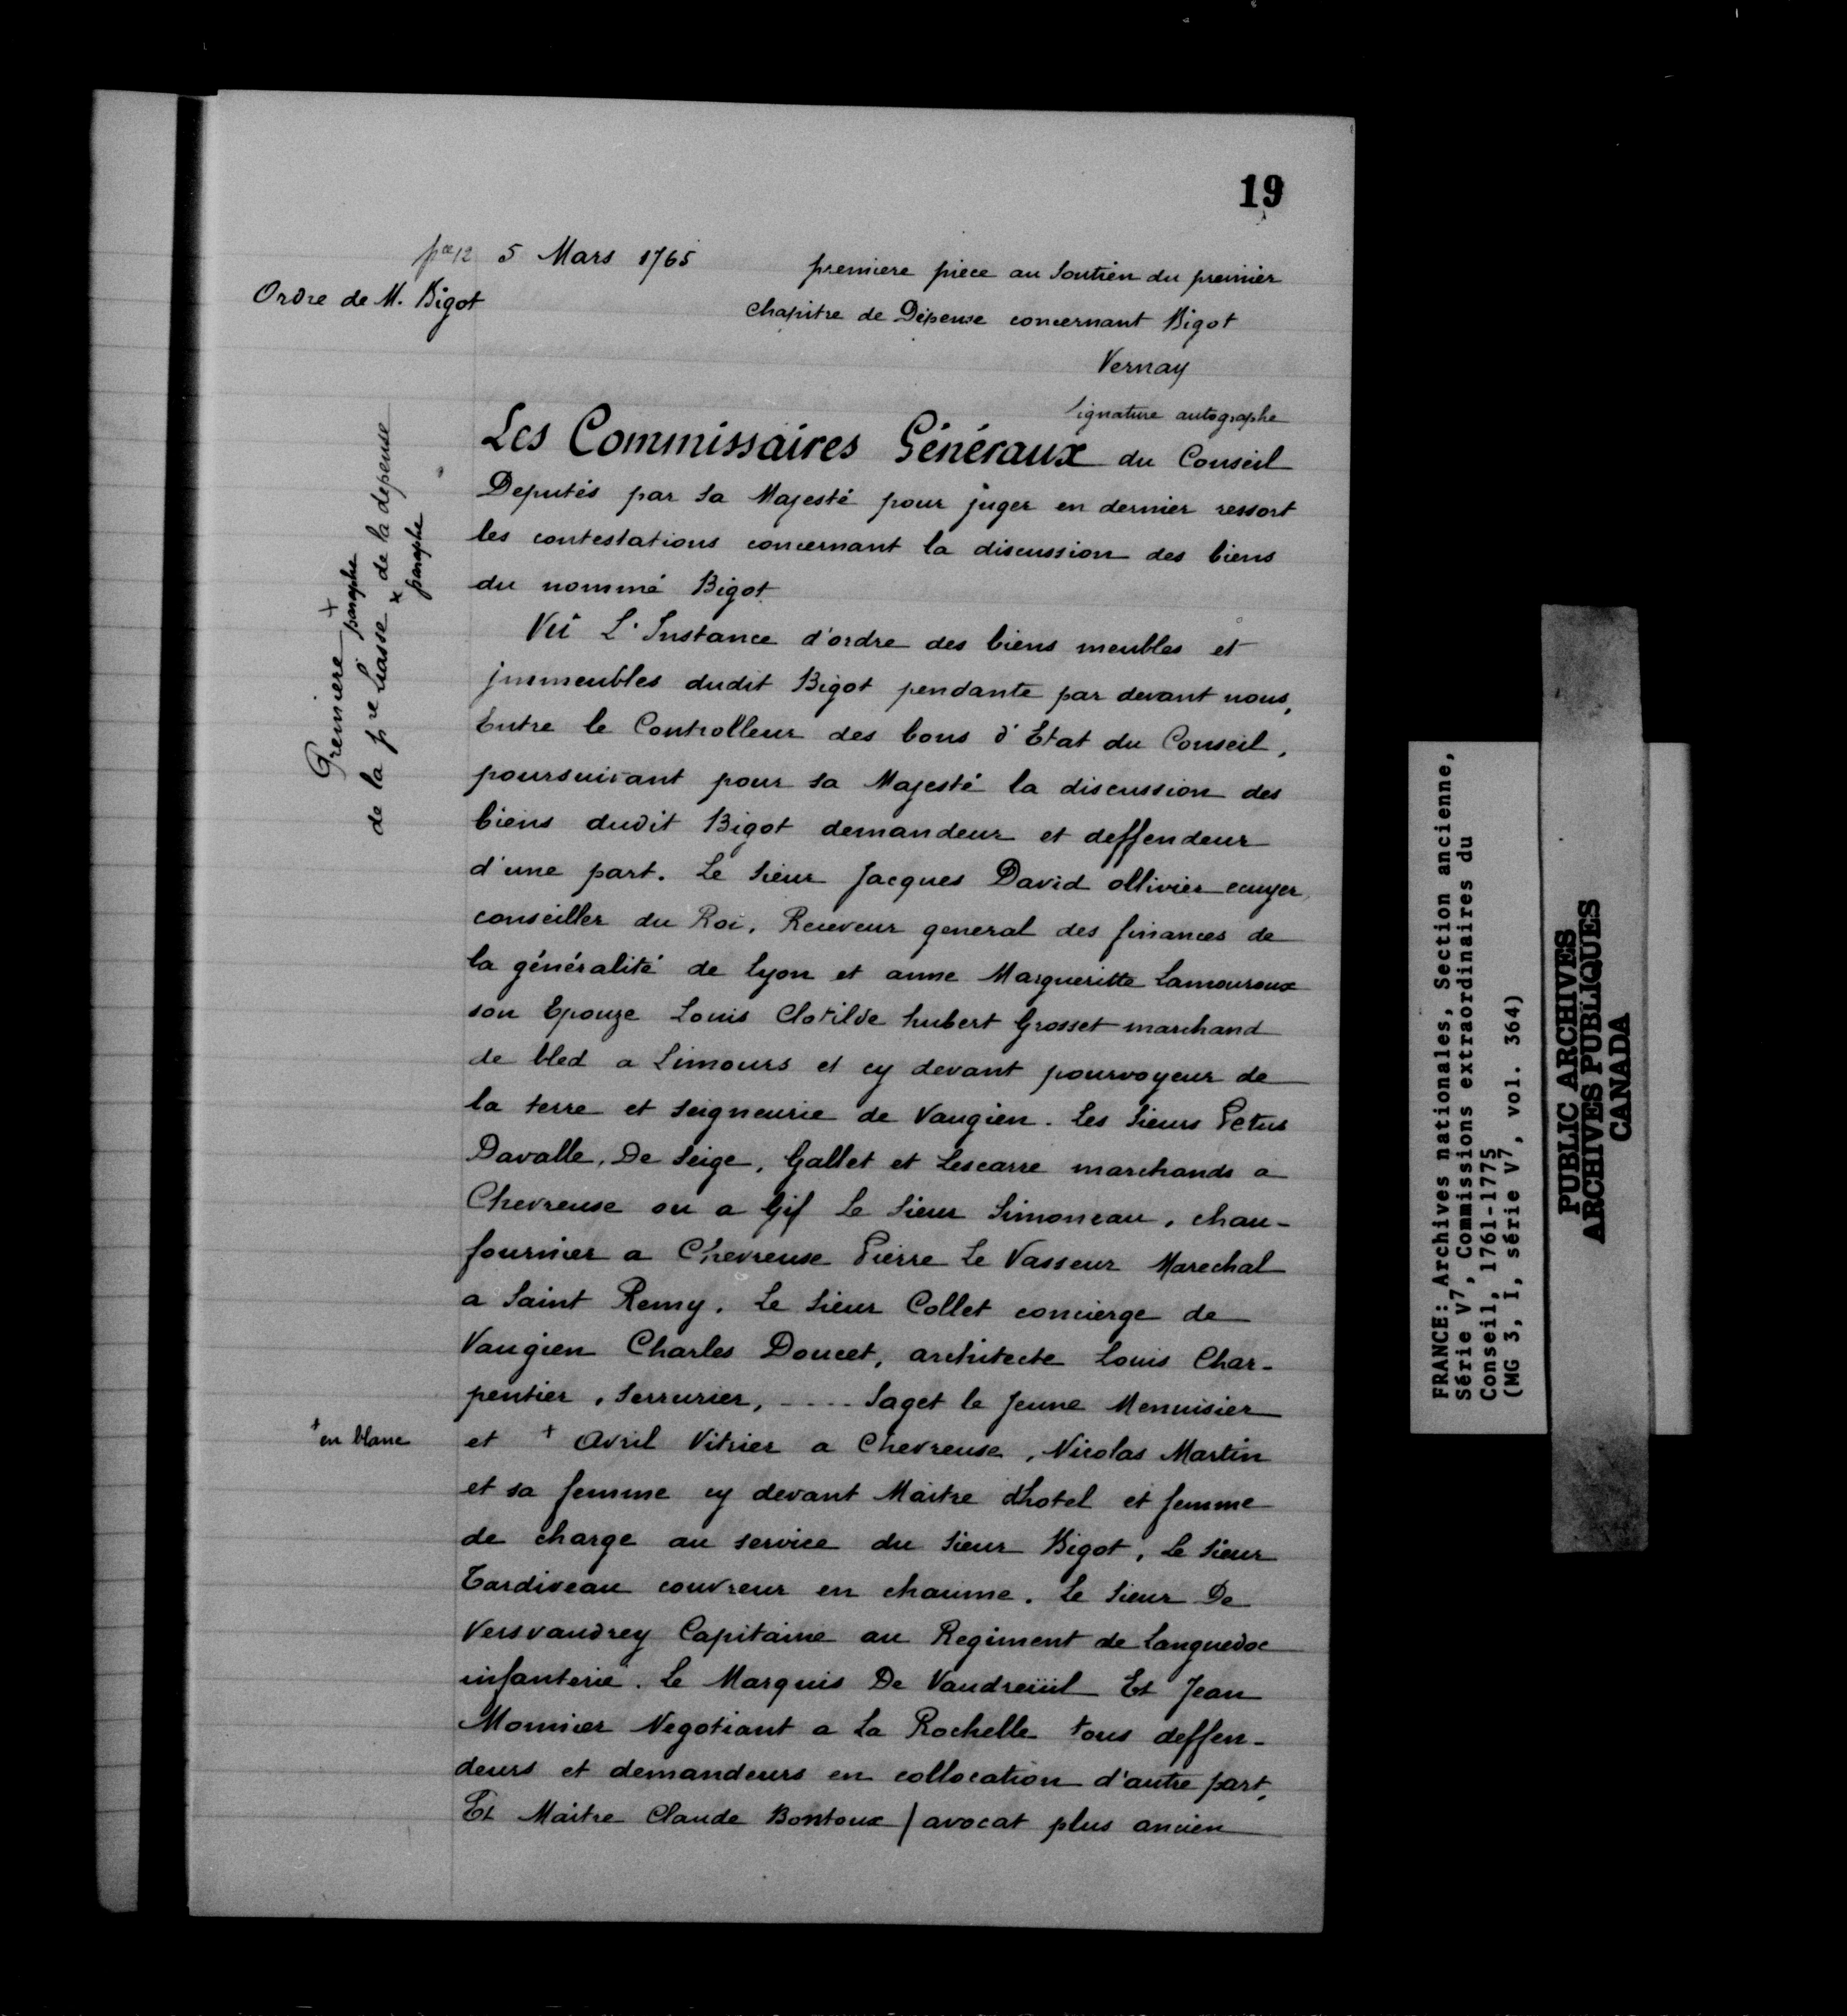 19
pce 12 5 Mars 1765
Ordre de M. Bigot
premiere piece au Soutien du premier
chapitre de Dépense concernant Bigot
Vernay
Signature autographe
Premiere + paraphe
de la pre Liasse x de la depense
paraphe
Les Commissaires Généraux du Conseil
Deputés par Sa Majesté pour juger en dernier ressort
les contestations concernant la discussion des biens
du nommé Bigot
Vû L'Instance d'ordre des biens meubles et
jmmeubles dudit Bigot pendante par devant nous,
Entre le Controlleur des bons d'Etat du Conseil,
poursuivant pour sa Majesté la discussion des
biens dudit Bigot demandeur et deffendeur
d'une part. Le Sieur Jacques David ollivier ecuyer,
conseiller du Roi, Receveur general des finances de
la généralité de Lyon et anne Margueritte Lamouroux
son Epouze Louis Clotilde hubert Grosset marchand
de bled a Limours et cy devant pourvoyeur de
la terre et Seigneurie de Vaugien. Les Sieurs Petus
Davalle, De Seige, Gallet et Lescarre marchands a
Chevreuse ou a Gif Le Sieur Simoneau, chau-
fournier a Chevreuse Pierre Le Vasseur Marechal
a Saint Remy. Le Sieur Collet concierge de
Vaugien Charles Doucet, architecte Louis Char-
pentier, Serrurier, .... Saget le Jeune Menuisier
+ en blanc
et + Avril Vitrier a Chevreuse, Nicolas Martin
et sa femme cy devant Maitre d'hotel et femme
de charge au service du Sieur Bigot, Le Sieur
Tardiveau couvreur en chaume. Le Sieur De
Versvaudrey Capitaine au Regiment de Languedoc
infanterie. Le Marquis De Vaudreüil Et Jean
Monnier Negotiant a La Rochelle tous deffen-
deurs et demandeurs en collocation d'autre part,
Et Maitre Claude Bontoux / avocat plus ancien
FRANCE: Archives nationales, Section ancienne,
Série V7, Commissions extraordinaires du
Conseil, 1761-1775
(MG 3, I, série V7, vol. 364)
PUBLIC ARCHIVES
ARCHIVES PUBLIQUES
CANADA